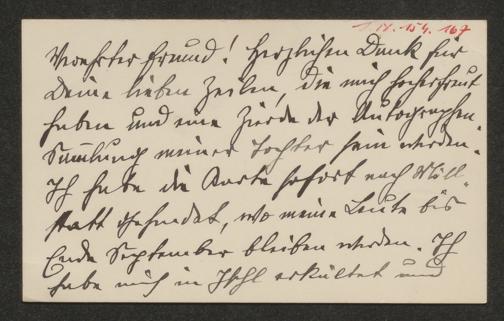 I.N. 154.167
Verehrter Freund! Herzlichen Dank für
Deine lieben Zeilen, die mich hocherfreut
haben und eine Zierde der Autographen-
Sammlung meiner Tochter sein werden.
Ich habe die Karte sofort nach
statt gesendet, wo meine Leute bis
Ende September bleiben werden. Ich
habe mich in Ischl erkältet und